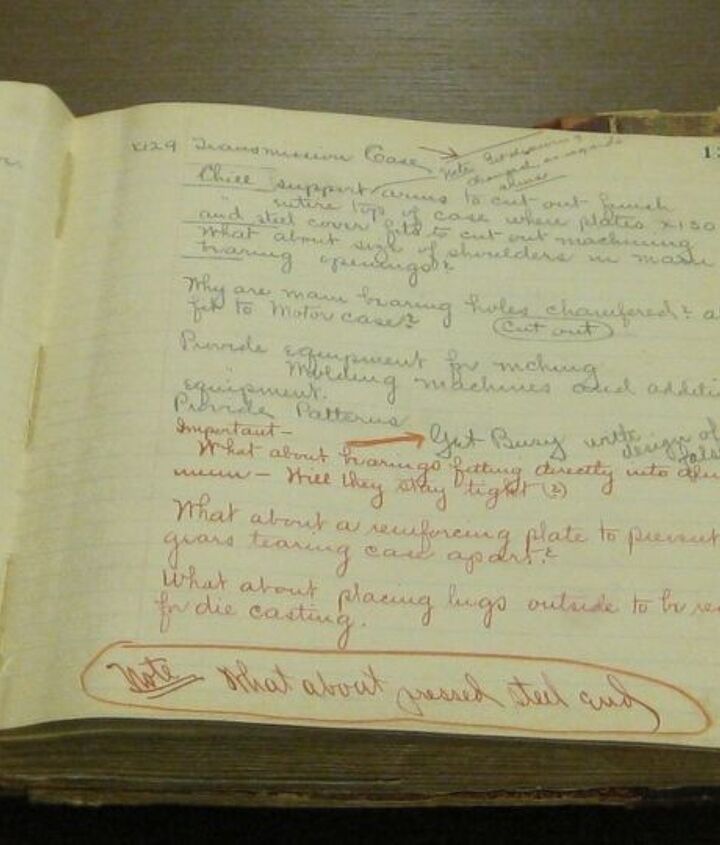 X129 Transmission Case
Note: Get drawing
changed as regards
above
Chill support arms to cut out finish
entire top of case where plates X130
and steel cover fits to cut out machining
What about size of shoulders in main
bearing openings?
Why are main bearing holes chamfered?
fit to Motor case?
(Cut out)
Provide equipment for
Molding machines and
equipment.
Provide Patterns
Important —
Get Busy with
design of
What about bearings fitting directly into
minum — Will they stay tight (?)
What about a reinforcing plate to prevent
gears tearing case apart?
What about placing lugs outside to be
for die casting.
Note What about pressed steel and